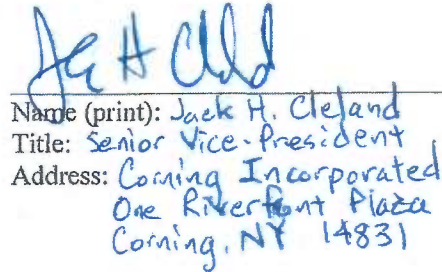 Name (print): Jack H. Cleland
Title: Senior Vice-President
Address: Corning Incorporated
One Riverfront Plaza
Corning, NY 14831